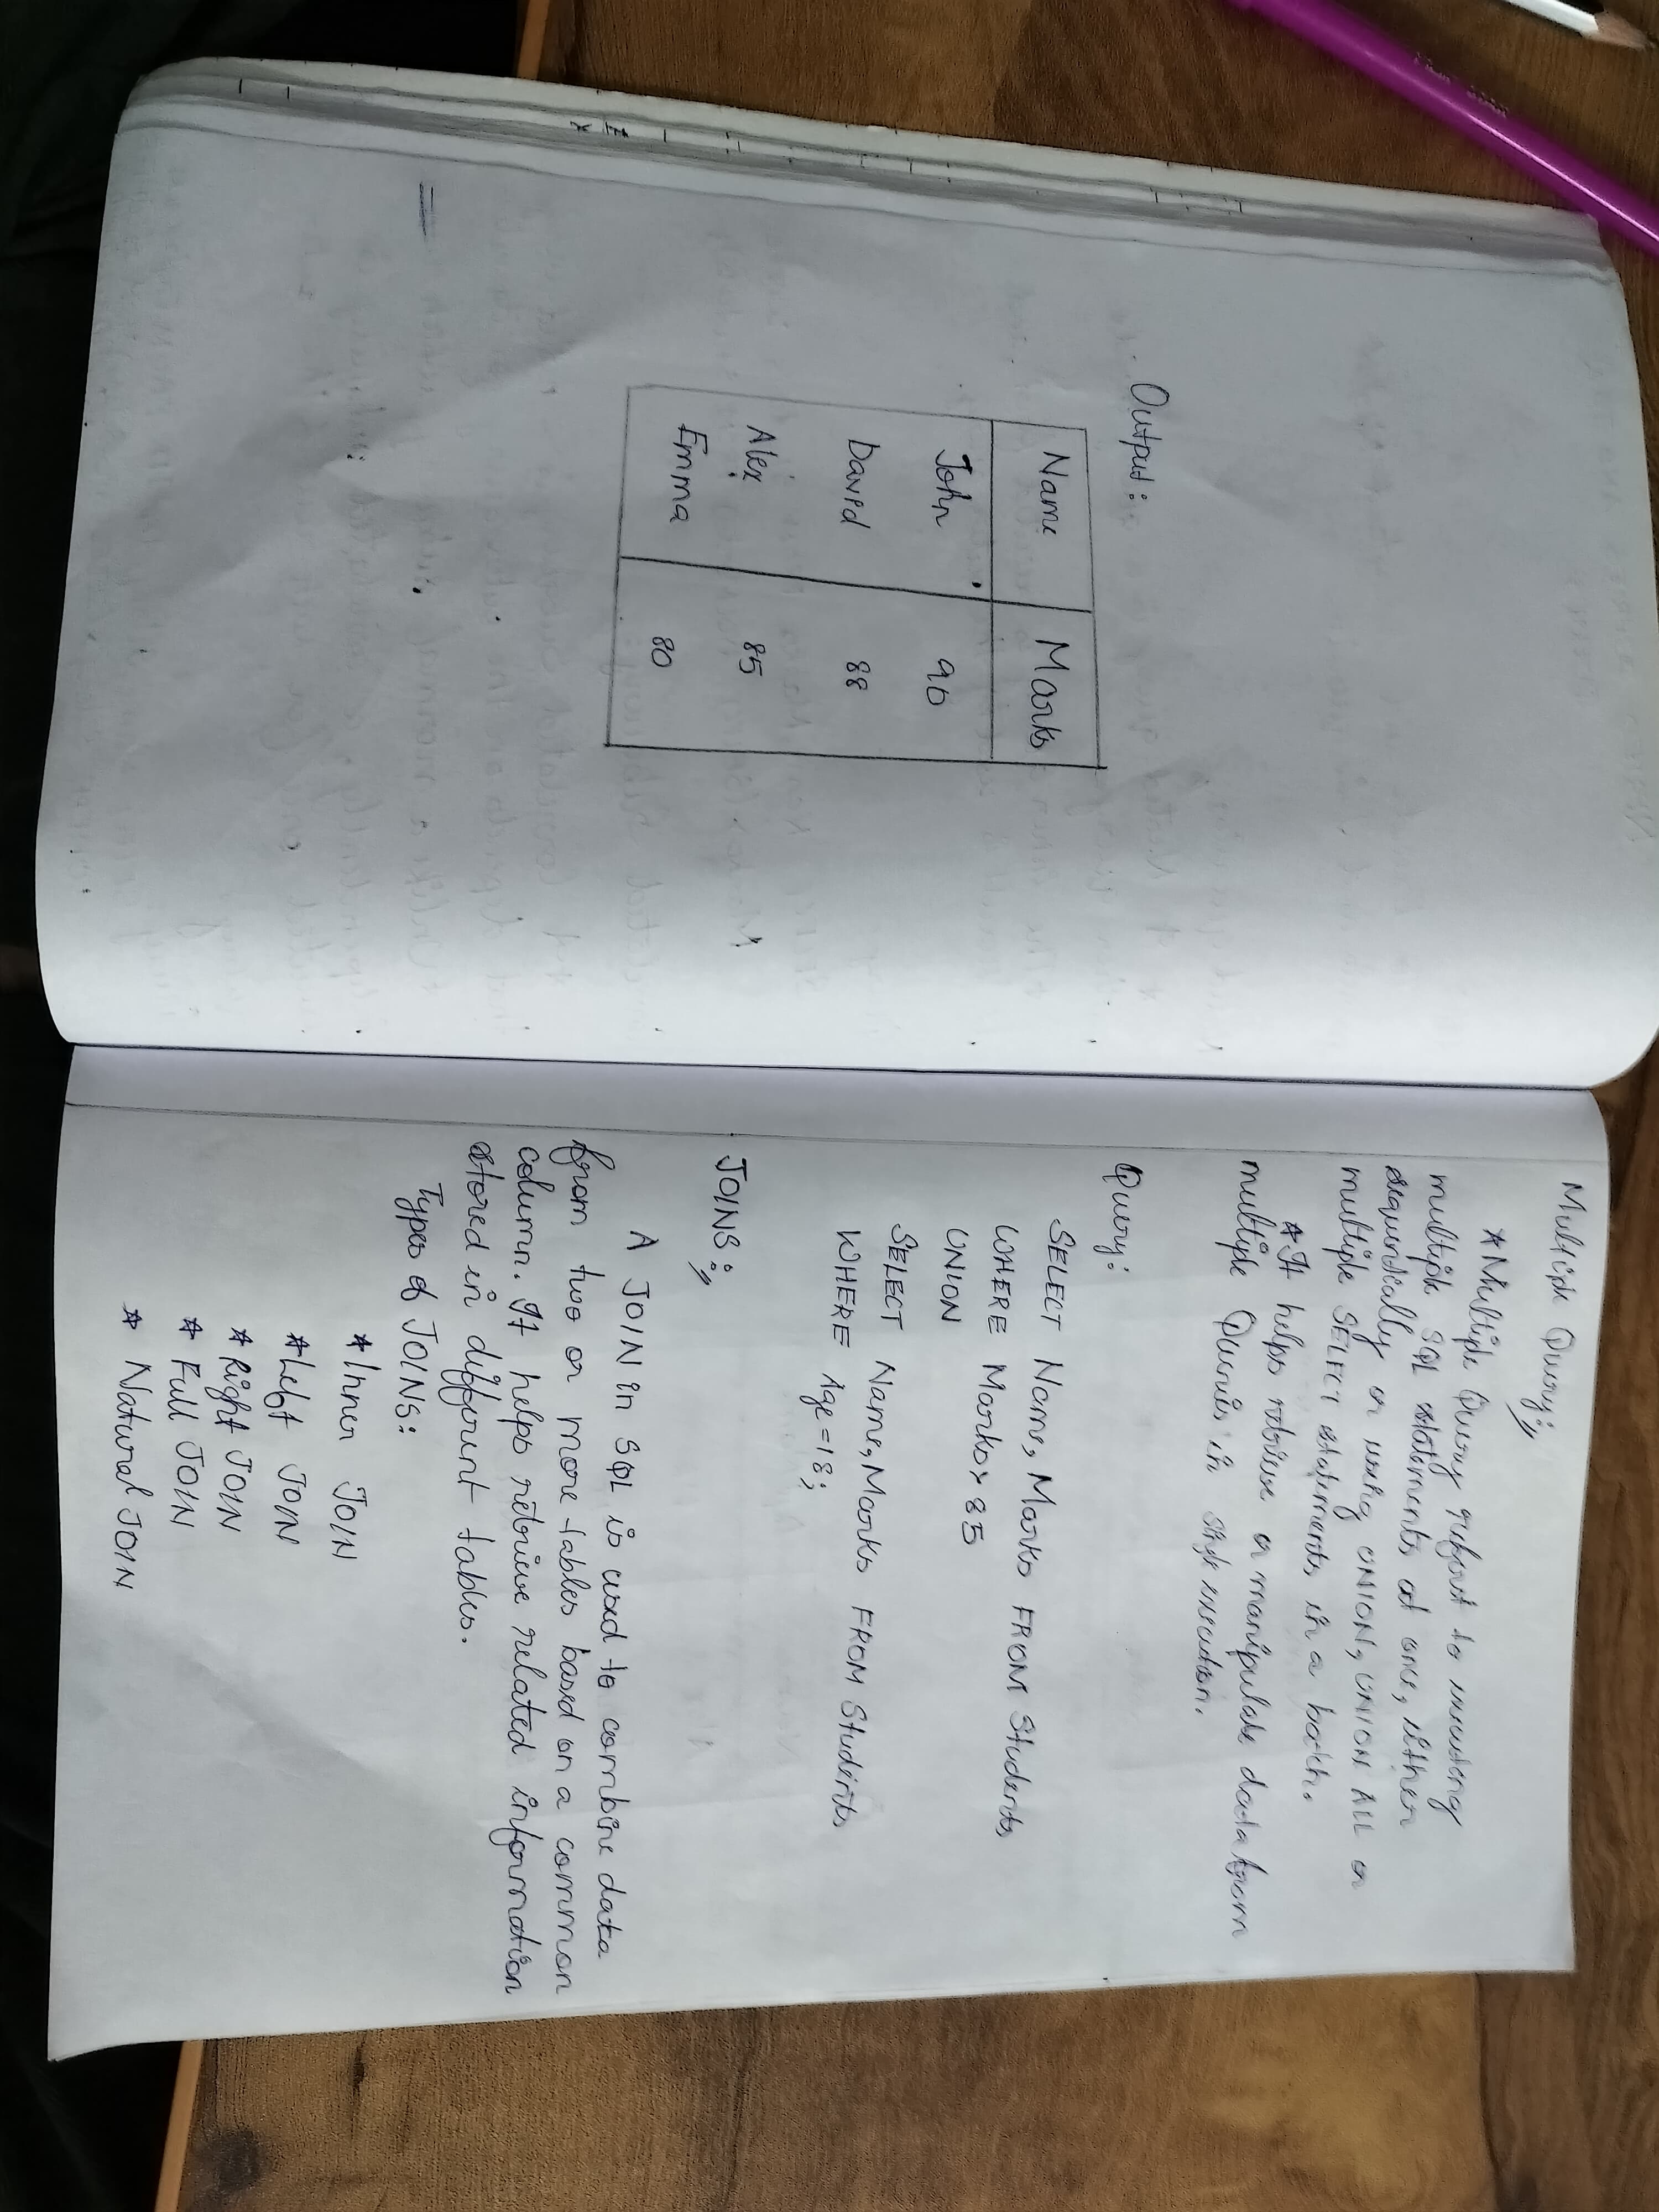 Output:
Name Marks
John 90
David 88
Alex 85
Emma 80
Multiple Query:
*Multiple Query refers to executing
multiple SQL statements at once, either
sequentially or using UNION, UNION ALL or
multiple SELECT statements in a batch.
*It helps retrieve or manipulate data from
multiple Queries in single execution.
Query:
SELECT Name, Marks FROM Students
WHERE Marks > 85
UNION
SELECT Name, Marks FROM Students
WHERE Age = 18;
JOINS:
A JOIN in SQL is used to combine data
from two or more tables based on a common
column. It helps retrieve related information
stored in different tables.
Types of JOINS:
*Inner JOIN
*Left JOIN
*Right JOIN
* Full JOIN
* Natural JOIN